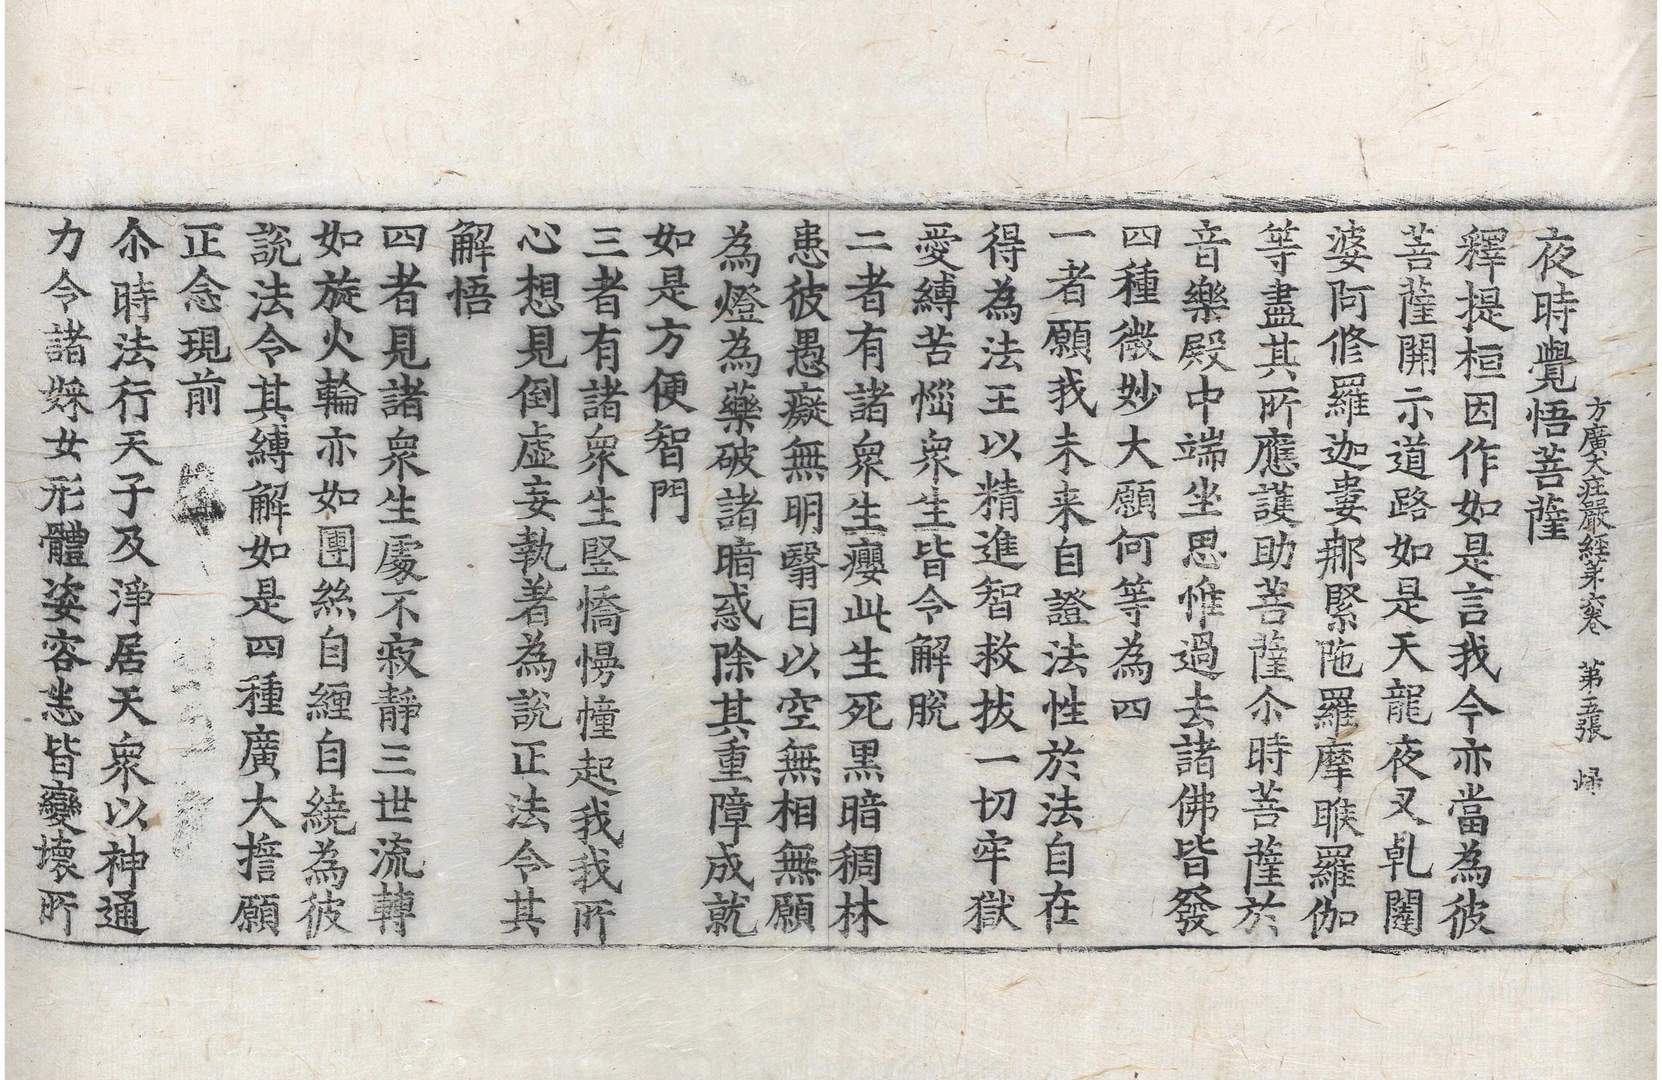 方廣大庄嚴經第六卷　第五張　歸
夜時覺悟菩薩
釋提桓因作如是言我今亦當為彼
菩薩開示道路如是天龍夜叉乹闥
婆阿修羅迦婁郍緊陁羅摩睺羅伽
等盡其所應護助菩薩尒時菩薩於
音樂殿中端坐思惟過去諸佛皆發
四種微妙大願何等為四
一者願我未来自證法性於法自在
得為法王以精進智救拔一切牢獄
愛縛苦惱衆生皆令解脫
二者有諸衆生癭此生死黒暗稠林
患彼愚癡無明翳目以空無相無願
為燈為藥破諸暗惑除其重障成就
如是方便智門
三者有諸衆生竪憍慢幢起我我所
心想見倒虛妄執著為說正法令其
解悟
四者見諸衆生處不寂靜三世流轉
如旋火輪亦如團絲自纏自繞為彼
說法令其縛解如是四種廣大擔願
正念現前
尒時法行天子及淨居天衆以神通
力令諸婇女形體姿容恙皆變壞所